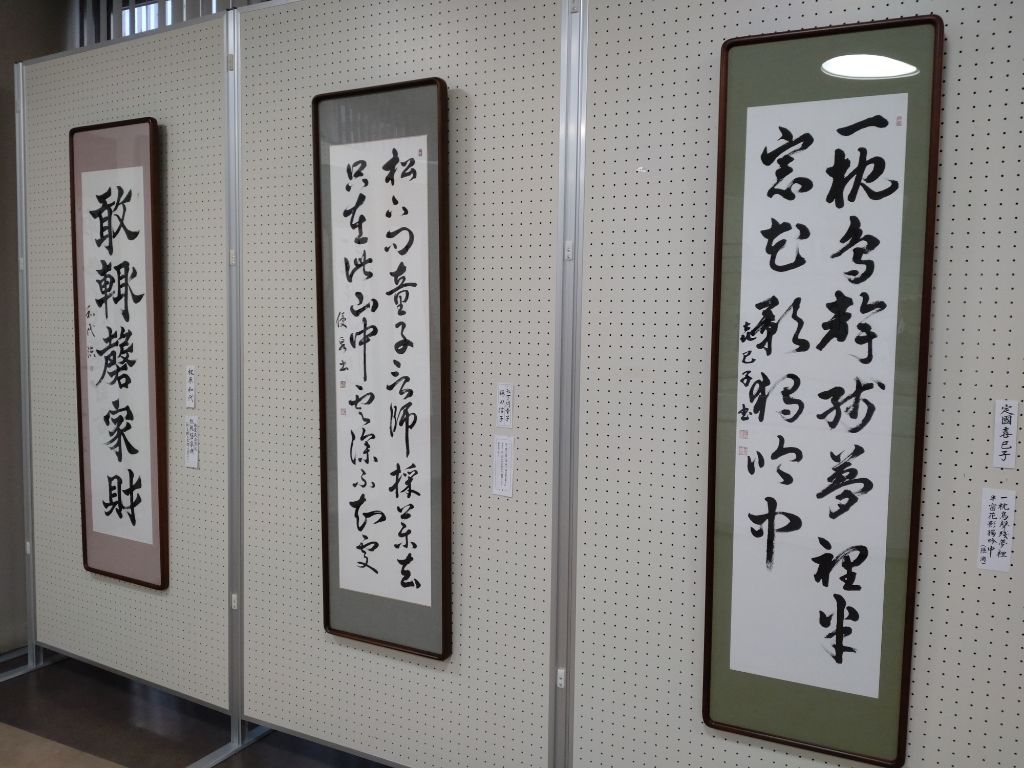 一枕鳥聲残夢裡半
窓花影獨吟中
喜巳子書
定國喜巳子
一枕鳥聲残夢裡
半窗花影獨吟中
松下問童子言師採薬去
只在此山中雲深不知処
敢輒罄家財